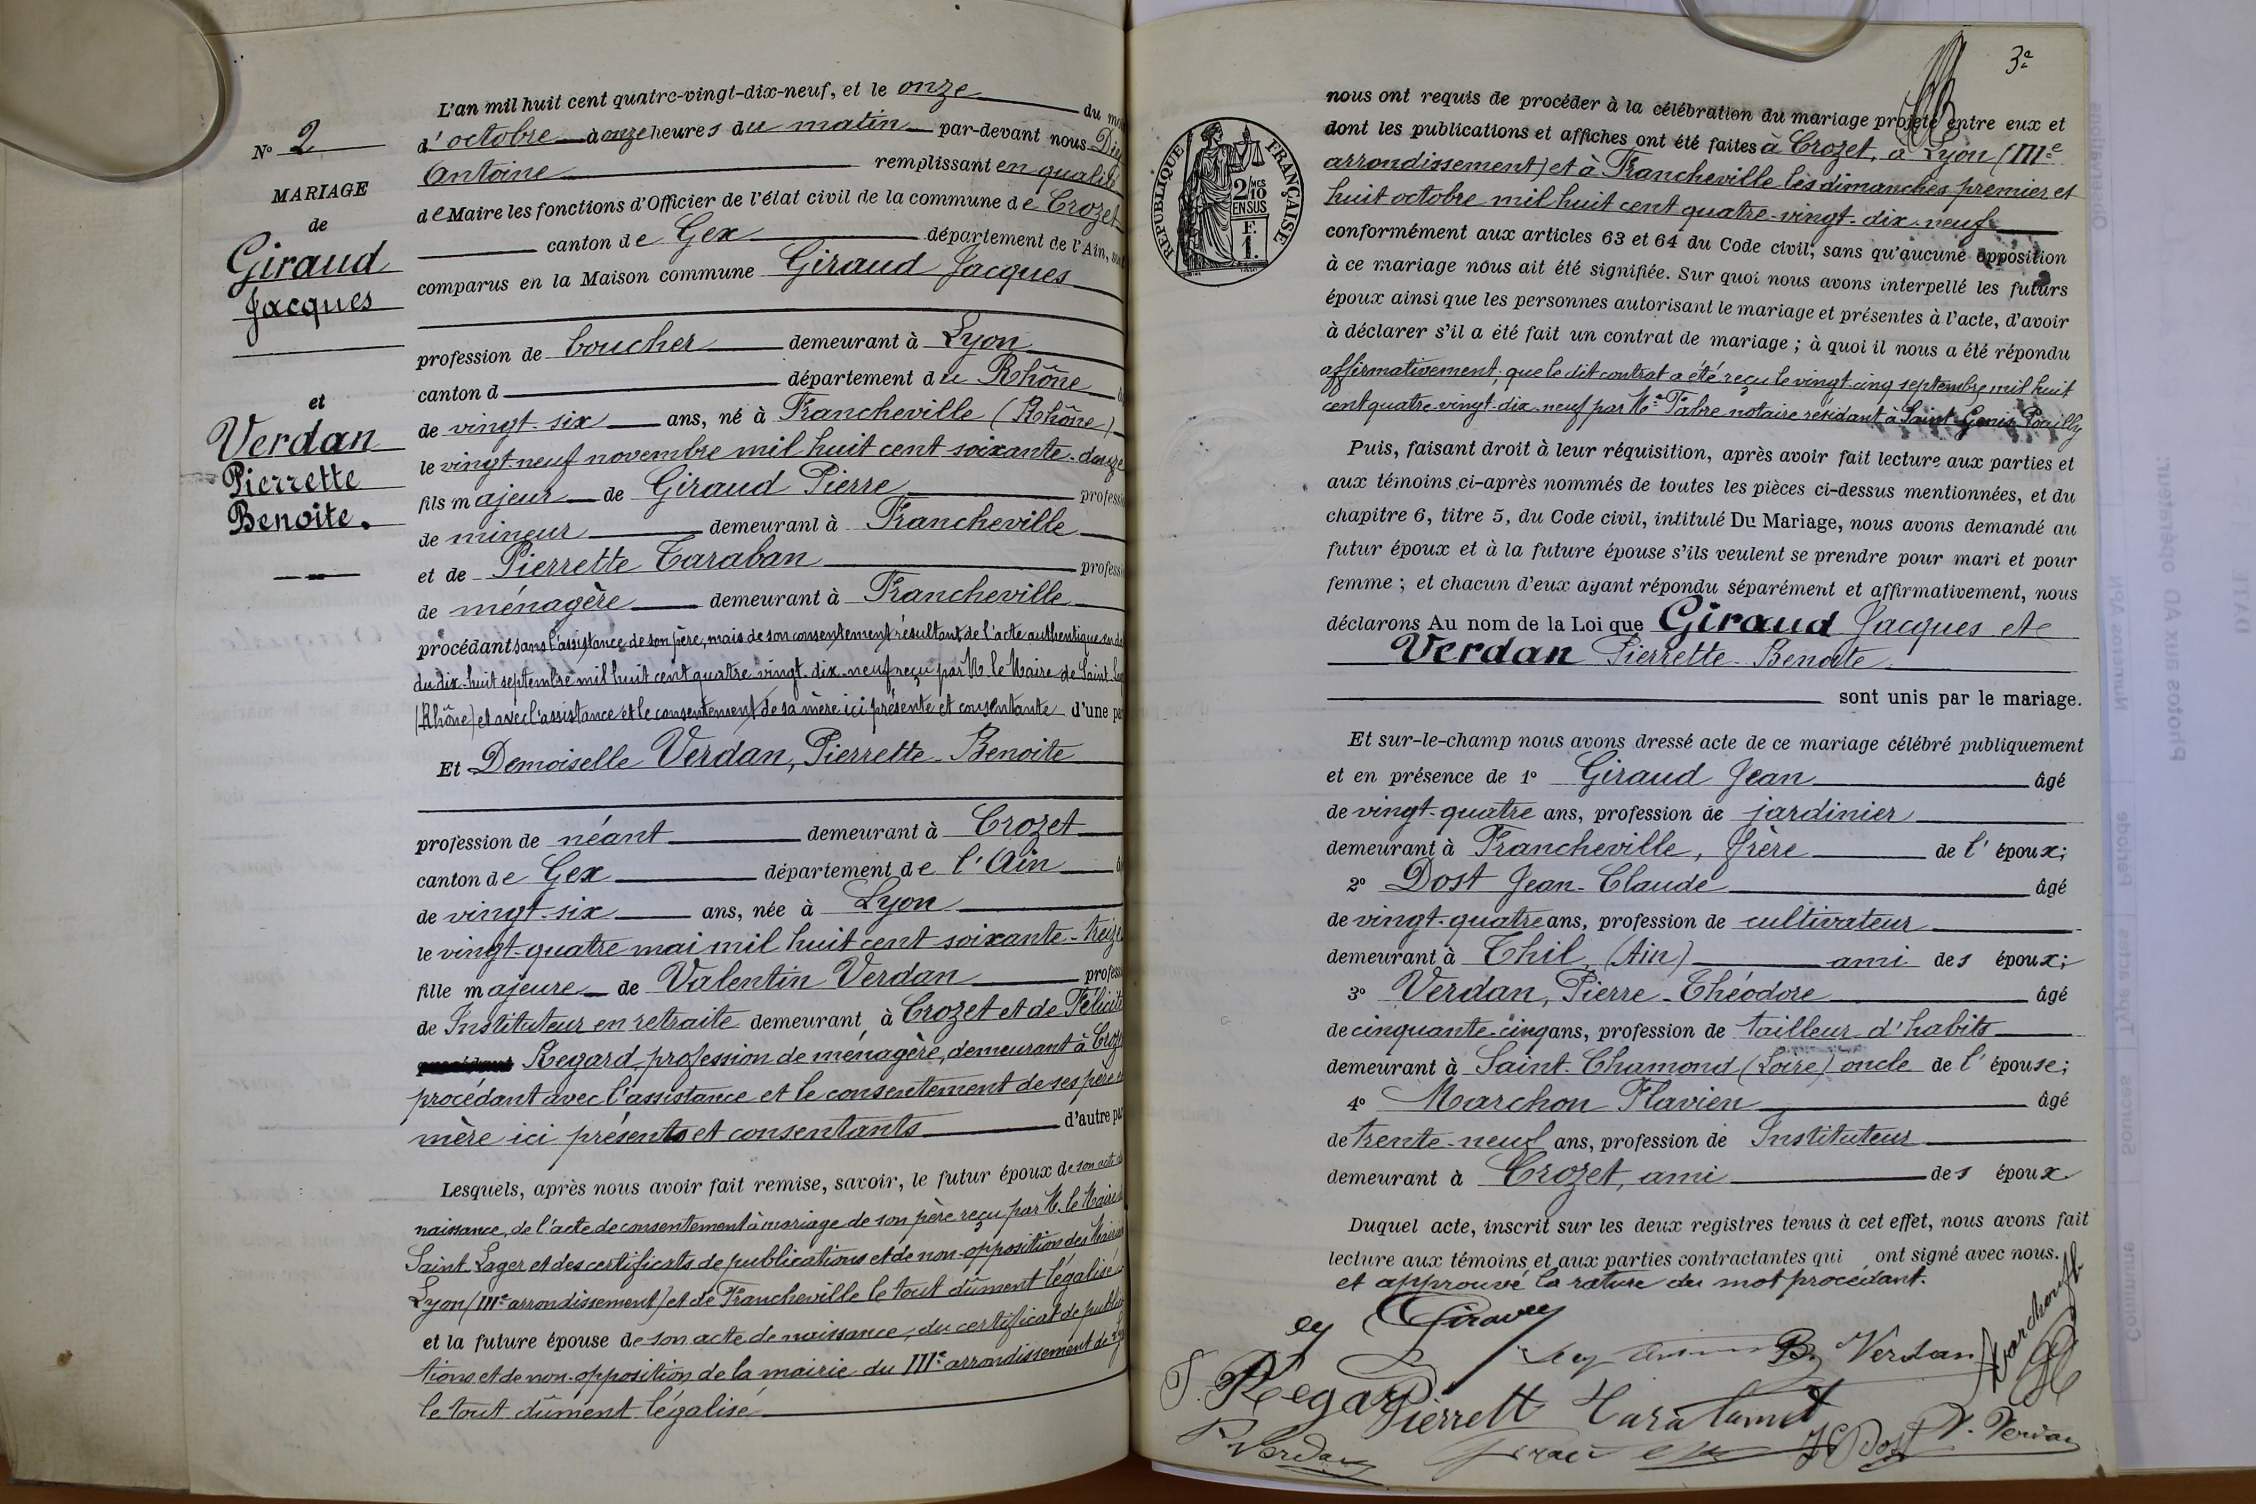 N° 2
MARIAGE
de
Giraud
Jacques
et
Verdan
Pierrette
Benoite.
L'an mil huit cent quatre-vingt-dix-neuf, et le onze du
d'octobre à onze heures du matin par-devant nous
Antoine remplissant en qualité
de Maire les fonctions d'Officier de l'état civil de la commune de Crozet
canton de Gex département de l'Ain,
comparus en la Maison commune Giraud Jacques
profession de boucher demeurant à Lyon
canton d département du Rhône
de vingt-six ans, né à Francheville (Rhône)
le vingt-neuf novembre mil huit cent soixante-douze
fils majeur de Giraud Pierre
de mineur demeurant à Francheville
et de Pierrette Taraban
de ménagère demeurant à Francheville
procédant sans l'assistance de son père, mais de son consentement résultant de l'acte authentique
du dix-huit septembre mil huit cent quatre-vingt-dix-neuf reçu par M. le Maire de Saint
(Rhône) et avec l'assistance et le consentement de sa mère ici présente et consentante d'une
Et Demoiselle Verdan, Pierrette-Benoite
profession de néant demeurant à Crozet
canton de Gex département de l'Ain
de vingt-six ans, née à Lyon
le vingt-quatre mai mil huit cent soixante-treize
fille majeure de Valentin Verdan
de Instituteur en retraite demeurant à Crozet et de Félicité
Regard profession de ménagère, demeurant à
procédant avec l'assistance et le consentement de ses père
mère ici présents et consentants d'autre
Lesquels, après nous avoir fait remise, savoir, le futur époux de son acte
naissance, de l'acte de consentement à mariage de son père reçu par M. le Maire
Saint Lager et des certificats de publications et de non-opposition des
Lyon (IIIe arrondissement) et de Francheville le tout dûment légalisé
et la future épouse de son acte de naissance, du certificat de
tions et de non-opposition de la mairie du IIIe arrondissement de
le tout dûment légalisé
3e
RÉPUBLIQUE FRANÇAISE
2/10 MES
EN SUS
1 F.
nous ont requis de procéder à la célébration du mariage projeté entre eux et
dont les publications et affiches ont été faites à Crozet, à Lyon (IIIe
arrondissement) et à Francheville les dimanches premier et
huit octobre mil huit cent quatre-vingt-dix-neuf
conformément aux articles 63 et 64 du Code civil, sans qu'aucune opposition
à ce mariage nous ait été signifiée. Sur quoi nous avons interpellé les futurs
époux ainsi que les personnes autorisant le mariage et présentes à l'acte, d'avoir
à déclarer s'il a été fait un contrat de mariage ; à quoi il nous a été répondu
affirmativement, que le dit contrat a été reçu le vingt-cinq septembre mil huit
cent quatre-vingt-dix-neuf par Me Fabre notaire résidant à Saint-Genis Pouilly
Puis, faisant droit à leur réquisition, après avoir fait lecture aux parties et
aux témoins ci-après nommés de toutes les pièces ci-dessus mentionnées, et du
chapitre 6, titre 5, du Code civil, intitulé Du Mariage, nous avons demandé au
futur époux et à la future épouse s'ils veulent se prendre pour mari et pour
femme ; et chacun d'eux ayant répondu séparément et affirmativement, nous
déclarons Au nom de la Loi que Giraud Jacques et
Verdan Pierrette-Benoite
sont unis par le mariage.
Et sur-le-champ nous avons dressé acte de ce mariage célébré publiquement
et en présence de 1° Giraud Jean âgé
de vingt-quatre ans, profession de jardinier
demeurant à Francheville, frère de l'époux;
2° Dost Jean-Claude âgé
de vingt-quatre ans, profession de cultivateur
demeurant à Thil, (Ain) ami des époux;
3° Verdan, Pierre-Théodore âgé
de cinquante-cinq ans, profession de tailleur d'habits
demeurant à Saint-Chamond (Loire) oncle de l'épouse;
4° Marchon Flavien âgé
de trente-neuf ans, profession de Instituteur
demeurant à Crozet, ami des époux
Duquel acte, inscrit sur les deux registres tenus à cet effet, nous avons fait
lecture aux témoins et aux parties contractantes qui ont signé avec nous.
et approuvé la rature du mot procédant.
B. Verdan
Regard
Pierrett
P. Verdan
J C Dost
V. Verdan